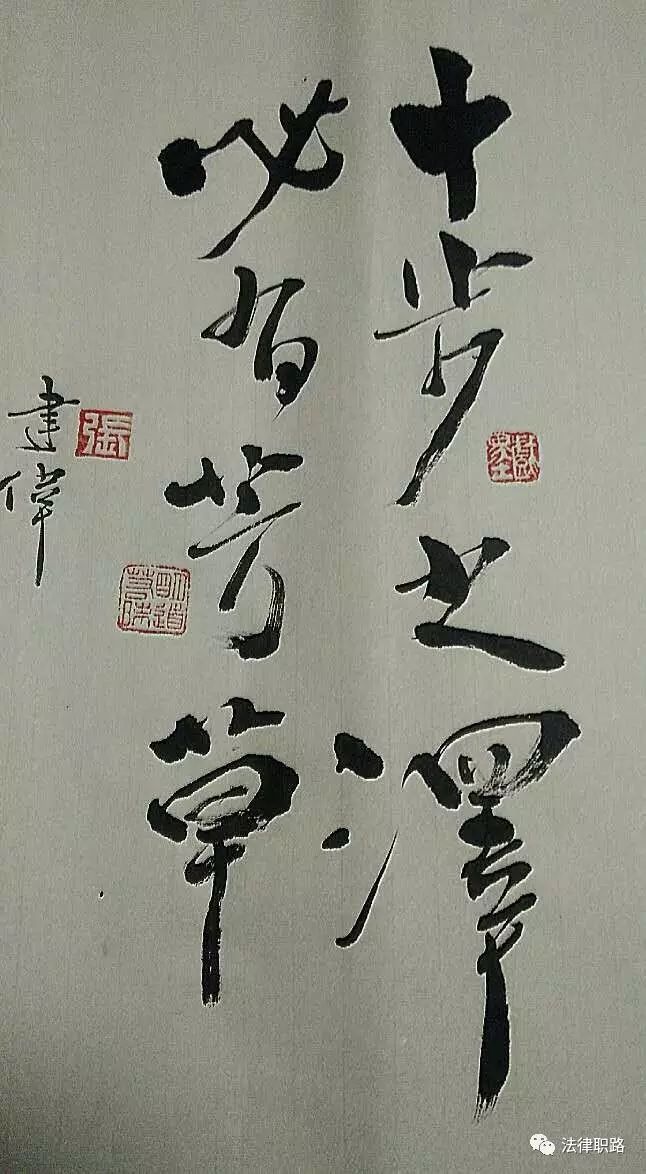 十步之澤
必有芳草
建偉
張
法律职路